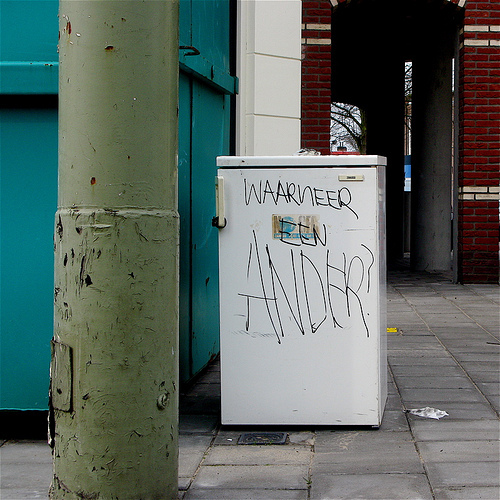 WAARNEER
EEN
ANDER?